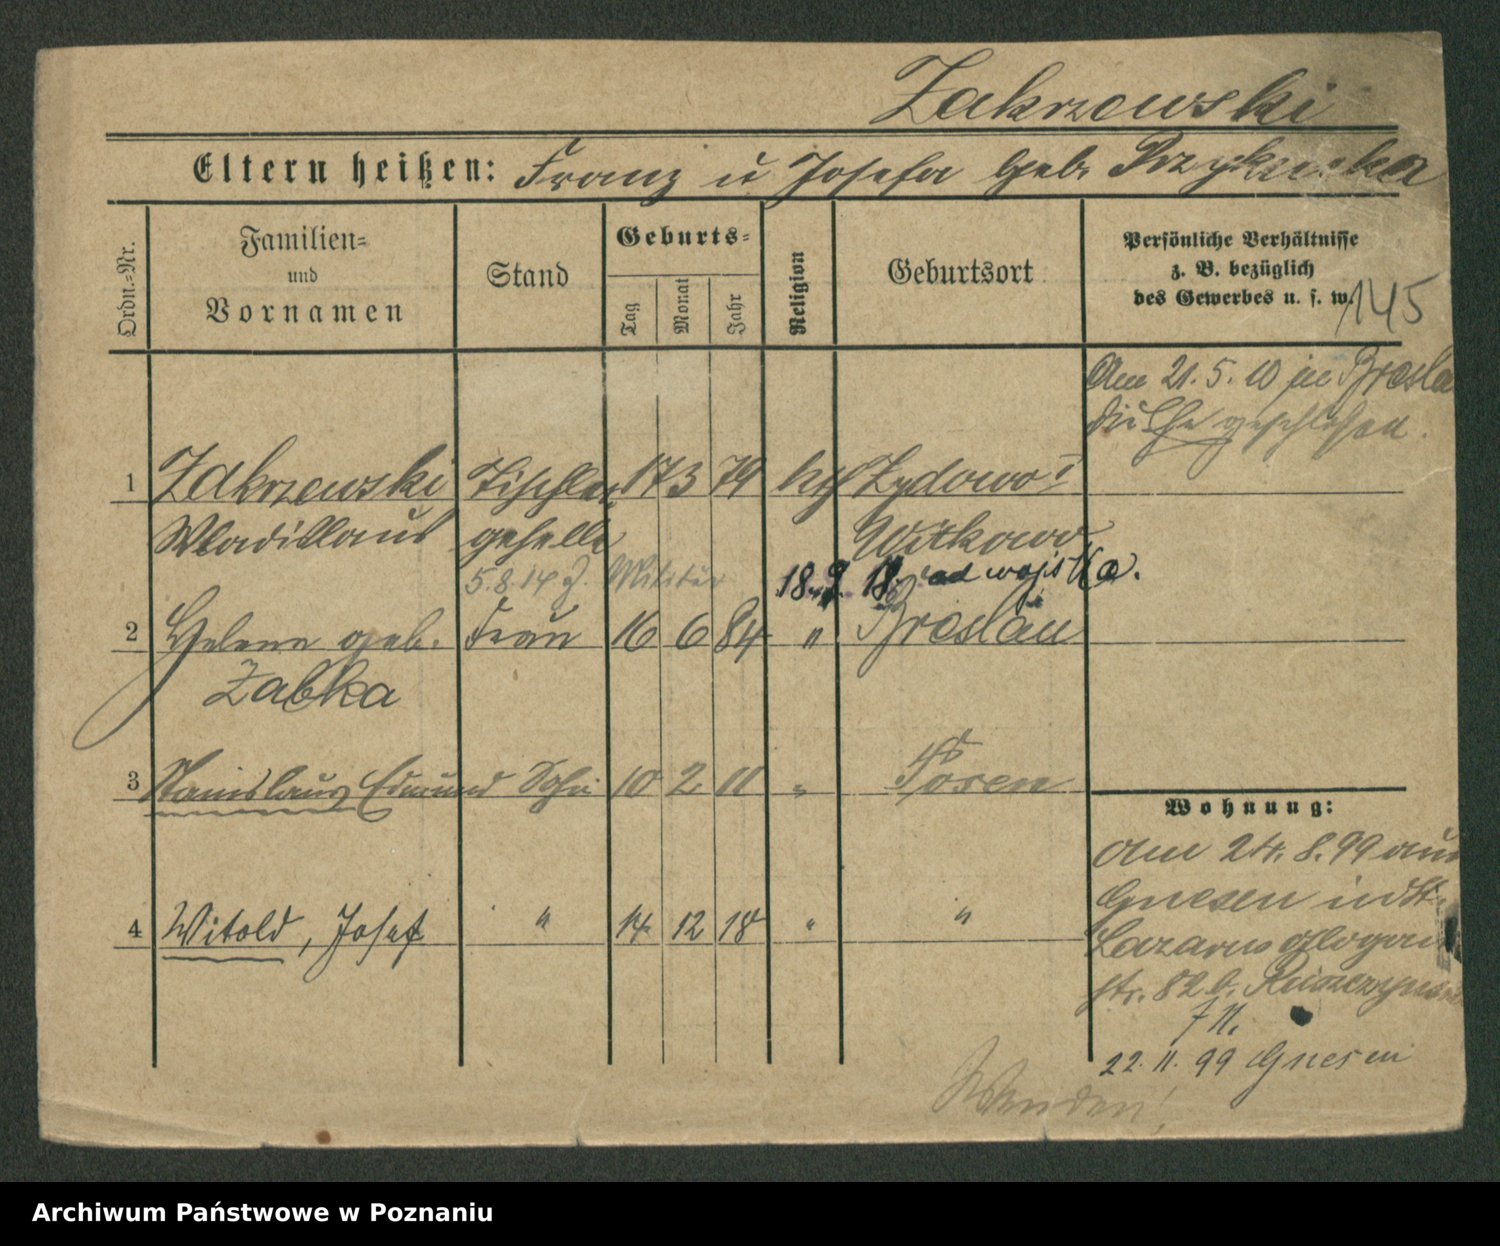 Zakrzewski
Eltern heißen: Franz u Josefa geb.
Ordn.-Nr.
Familien-
und
Vornamen
Stand
Geburts-
Tag
Monat
Jahr
Religion
Geburtsort
Persönliche Verhältnisse
z. B. bezüglich
des Gewerbes u. s. w.
145
Am 21.5.10 in Bresla
die Ehe geschlossen.
1 Zakrzewski Tischler 17 3 79 kth Zydowo
Wladislaus geselle Witkowo
5.8.14 z. Militär 18. 9. 18. od wojska.
2 Helene geb. Frau 16 6 84 " Breslau
Zabka
3 Stanislaus Edmund Sohn 10 2 11 " Posen
4 Witold, Josef " 14 12 18 " "
Wohnung:
Am 24. 8. 99 aus
Gnesen in St.
Lazarus Glogau
str. 82 b.
22. 11. 99 Gnesen
Wenden!
Archiwum Państwowe w Poznaniu